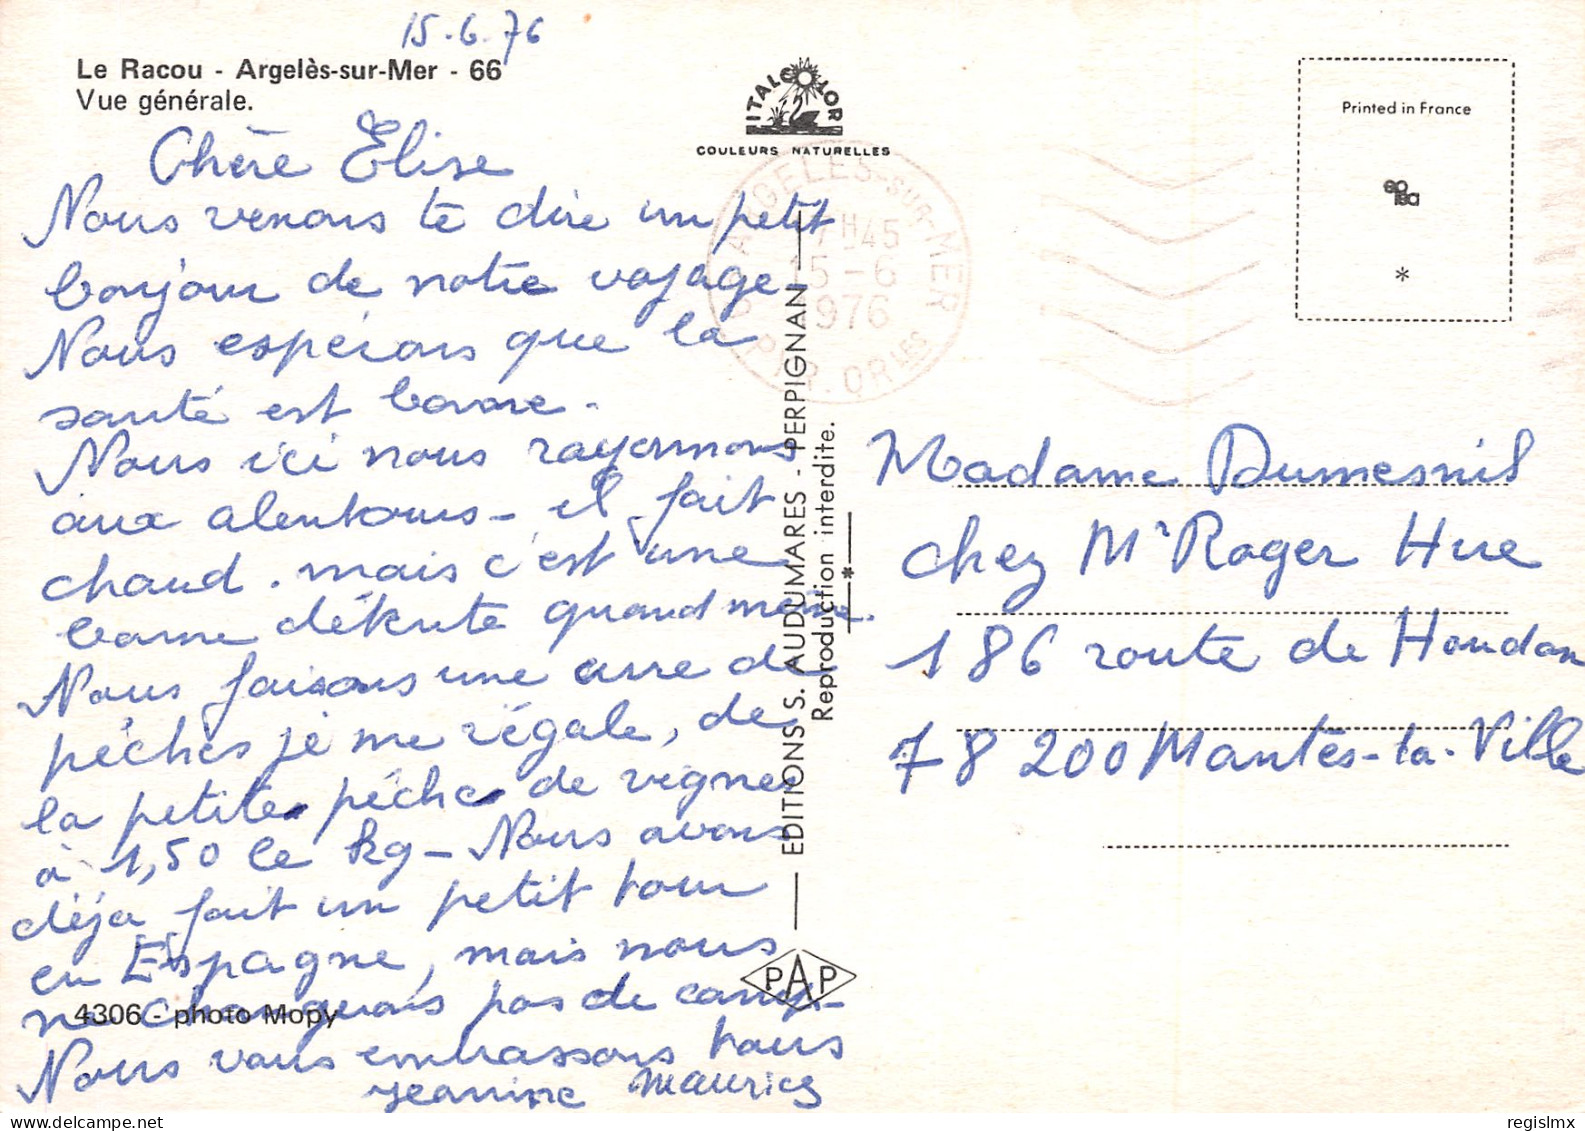 15-6-76
Le Racou - Argelès-sur-Mer - 66
Vue générale.
ITALCOLOR
COULEURS NATURELLES
Printed in France
*
ARGELES-SUR-MER
H45
15-6
1976
PYR. ORLES
Chère Elise
Nous venons te dire un petit
bonjour de notre voyage
Nous espérons que la
santé est bonne.
Nous ici nous rayonnons
aux alentours - il fait
chaud. mais c'est une
bonne détente quand même.
Nous faisons une cure de
pêches je me régale, de
la petite pêche de vigne
à 1,50 le kg - Nous avons
déjà fait un petit tour
en Espagne, mais nous
ne changeons pas de camp-
Nous vous embrassons tous
Jeanine Maurice
4306 - photo Mopy
EDITIONS S. AUDUMARES - PERPIGNAN
Reproduction interdite.
*
PAP
Madame Dumesnil
chez Mr Roger Hue
186 route de Houdan
78 200 Mantes-la-Ville
regislmx
delcampe.net